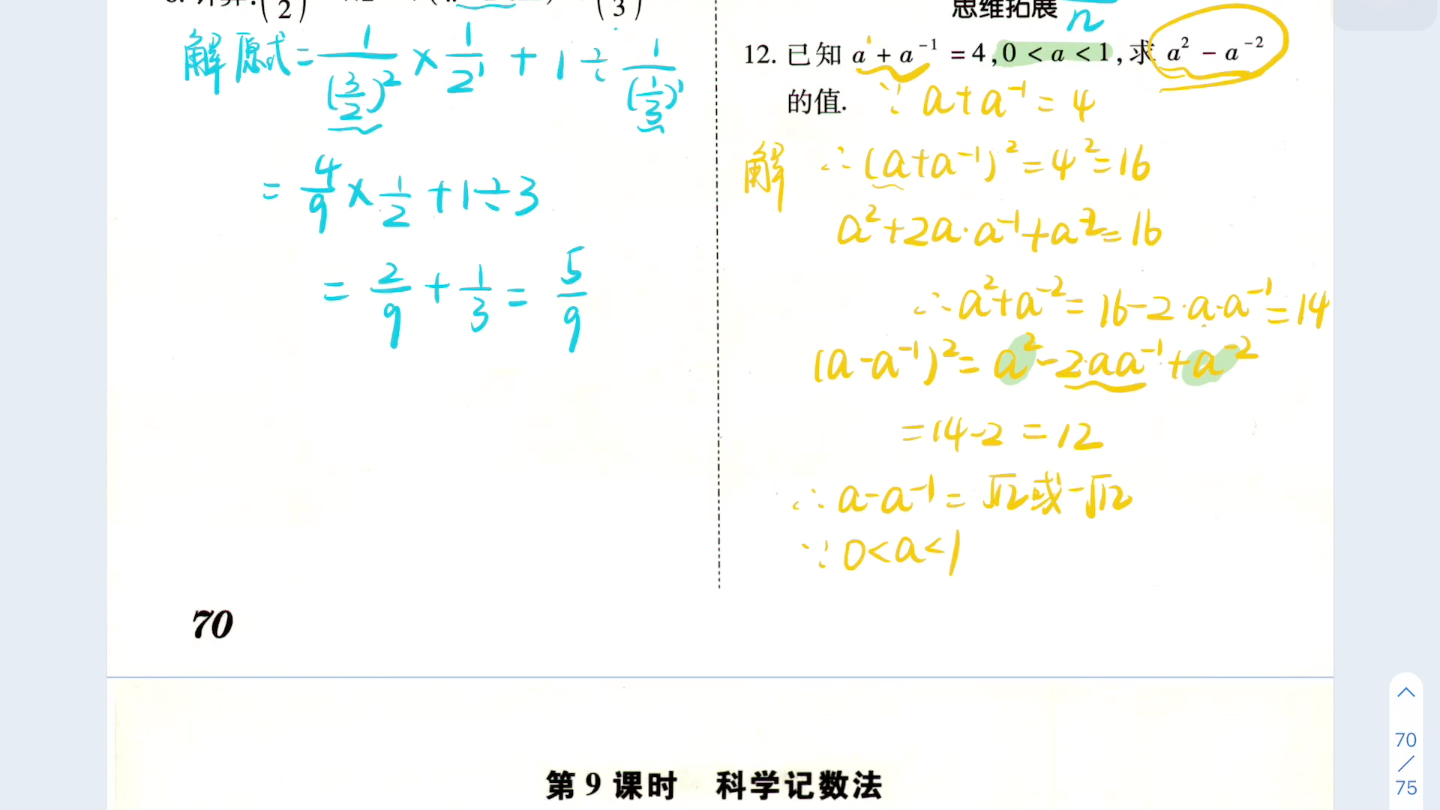 解 原式 = 1/(3/2)² × 1/2¹ + 1 ÷ 1/(1/3)¹
= 4/9 × 1/2 + 1 ÷ 3
= 2/9 + 1/3 = 5/9
70
思维拓展
12. 已知 a + a⁻¹ = 4, 0 < a < 1, 求 a² − a⁻²
的值. ∵ a + a⁻¹ = 4
解 ∴ (a+a⁻¹)² = 4² = 16
a² + 2a·a⁻¹ + a⁻² = 16
∴ a² + a⁻² = 16 − 2·a·a⁻¹ = 14
(a − a⁻¹)² = a² − 2aa⁻¹ + a⁻²
= 14 − 2 = 12
∴ a − a⁻¹ = √12 或 −√12
∵ 0 < a < 1
第 9 课时 科学记数法
70
/
75